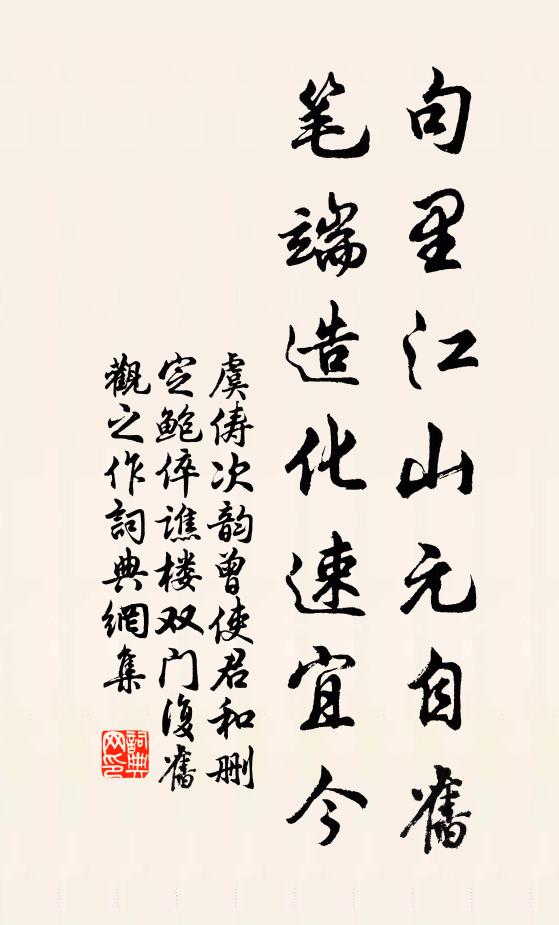 句里江山元自舊
笔端造化速宜今
虞俦次韵曾使君和删
定鲍倅谯楼双门復舊
觀之作詞典網集
詞典
网印